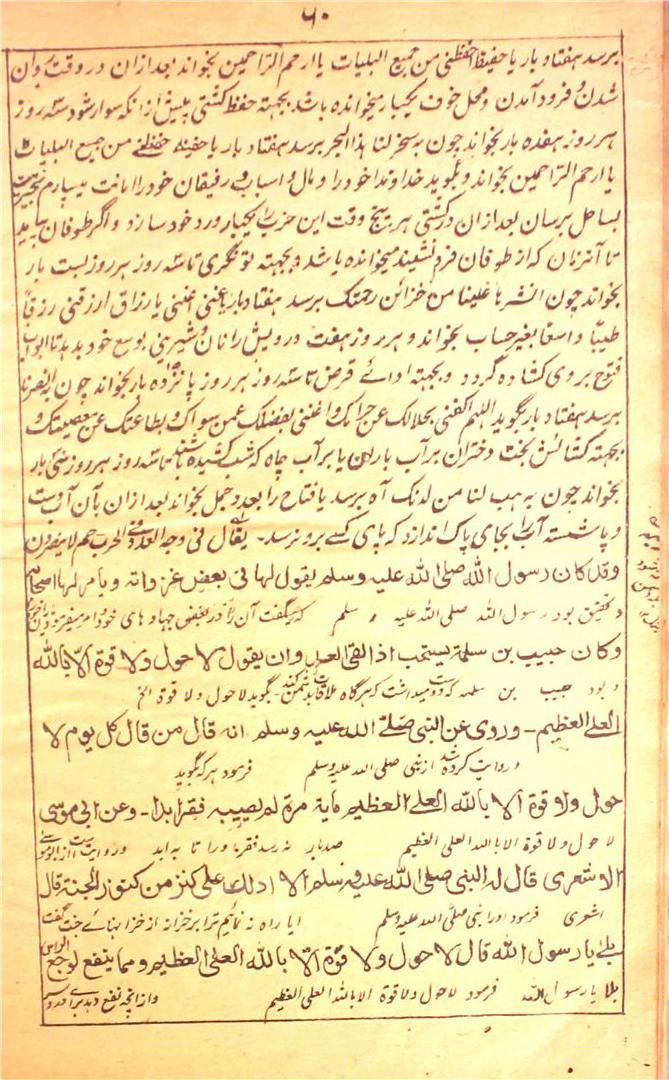 ۶۰
برسد هفتاد بار یا حفیظ احفظنی من جمیع البلیات یا ارحم الراحمین بخواند بعد ازان در وقت روان
شدن و فرود آمدن و محل خوف یکبار میخوانده باشد بجهته حفظ کشتی پیش از انکه سوار شود سه روز
هر روز هفده بار بخواند چون به سخر لنا هذا البحر برسد هفتاد بار یا حفیظ احفظنی من جمیع البلیات
یا ارحم الراحمین بخواند و بگوید خداوندا خود را و مال و اسباب و رفیقان خود را امانت میسپارم
بساحل برسان بعد ازان در کشتی هر پنج وقت این حزب را یکبار ورد خود سازد و اگر طوفان
تا آنزمان که از طوفان فرو نشیند میخوانده باشد و بجهته تونگری تا سه روز هر روز بست بار
بخواند چون انشرها علینا من خزائن رحمتک برسد هفتاد بار یا غنی اغننی یا رزاق ارزقنی رزقا
طیبا واسعا بغیر حساب بخواند و هر روز هفت درویش را نان و شیرینی بوسع خود بدهد تا ابواب
فتوح بروی کشاده گردد و بجهته ادائے قرض تا سه روز هر روز پانزده بار بخواند چون
برسد هفتاد بار بگوید اللهم اکفنی بحلالک عن حرامک و اغننی بفضلک عمن سواک و بطاعتک عن معصیتک و
بجهته کشائش بخت دختران بر آب باران یا بر آب چاه که شب کشیده باشند تا سه روز هر روز بار
بخواند چون به هب لنا من لدنک آه برسد یا فتاح را بعدد جمل بخواند بعد ازان بآن آب دست
و پا شسته آب را بجای پاک اندازد که پای کسے برو نرسد۔ یقال فی وجه العدو فی الحرب حم لا ینصرون
وقد کان رسول الله صلی الله علیه وسلم یقول لها فی بعض غزواته و یامر لها اصحابه
و تحقیق بود رسول الله صلی الله علیه و سلم که میگفت آن را در بعض جهادهای خود و امر میفرمود
وکان حبیب بن سلمة یستحب اذا لقی العدو ان یقول لا حول ولا قوة الا بالله
و بود حبیب بن سلمه که دوست میداشت که هرگاه ملاقات کند بگوید لا حول ولا قوة الخ
العلی العظیم۔ وروی عن النبی صلی الله علیه وسلم انه قال من قال کل یوم لا
و روایت کرده شد از نبی صلی الله علیه وسلم فرمود هر که بگوید
حول ولا قوة الا بالله العلی العظیم مایة مرة لم یصیبه فقر ابدا۔ وعن ابی موسی
لا حول ولا قوة الا بالله العلی العظیم صد بار نه رسد فقر او را تا به ابد و روایت است از ابو موسی
الاشعری قال له النبی صلی الله علیه وسلم الا ادلک علی کنز من کنوز الجنة قال
اشعری فرمود او را نبی صلی الله علیه وسلم ایا راه نه نمائیم ترا بر خزانه از خزانهائے جنت گفت
بلے یا رسول الله قال لا حول ولا قوة الا بالله العلی العظیم ومما ینفع لوجع الراس
بلا یا رسول الله فرمود لا حول ولا قوة الا بالله العلی العظیم و ازانچه نفع دهد برای درد سر